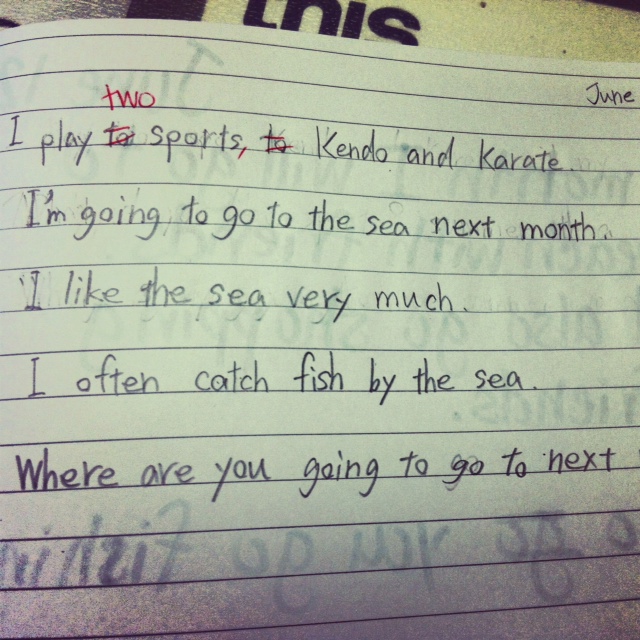 this
June
two
I play to sports, to Kendo and Karate.
I'm going to go to the sea next month.
I like the sea very much.
I often catch fish by the sea.
Where are you going to go to next